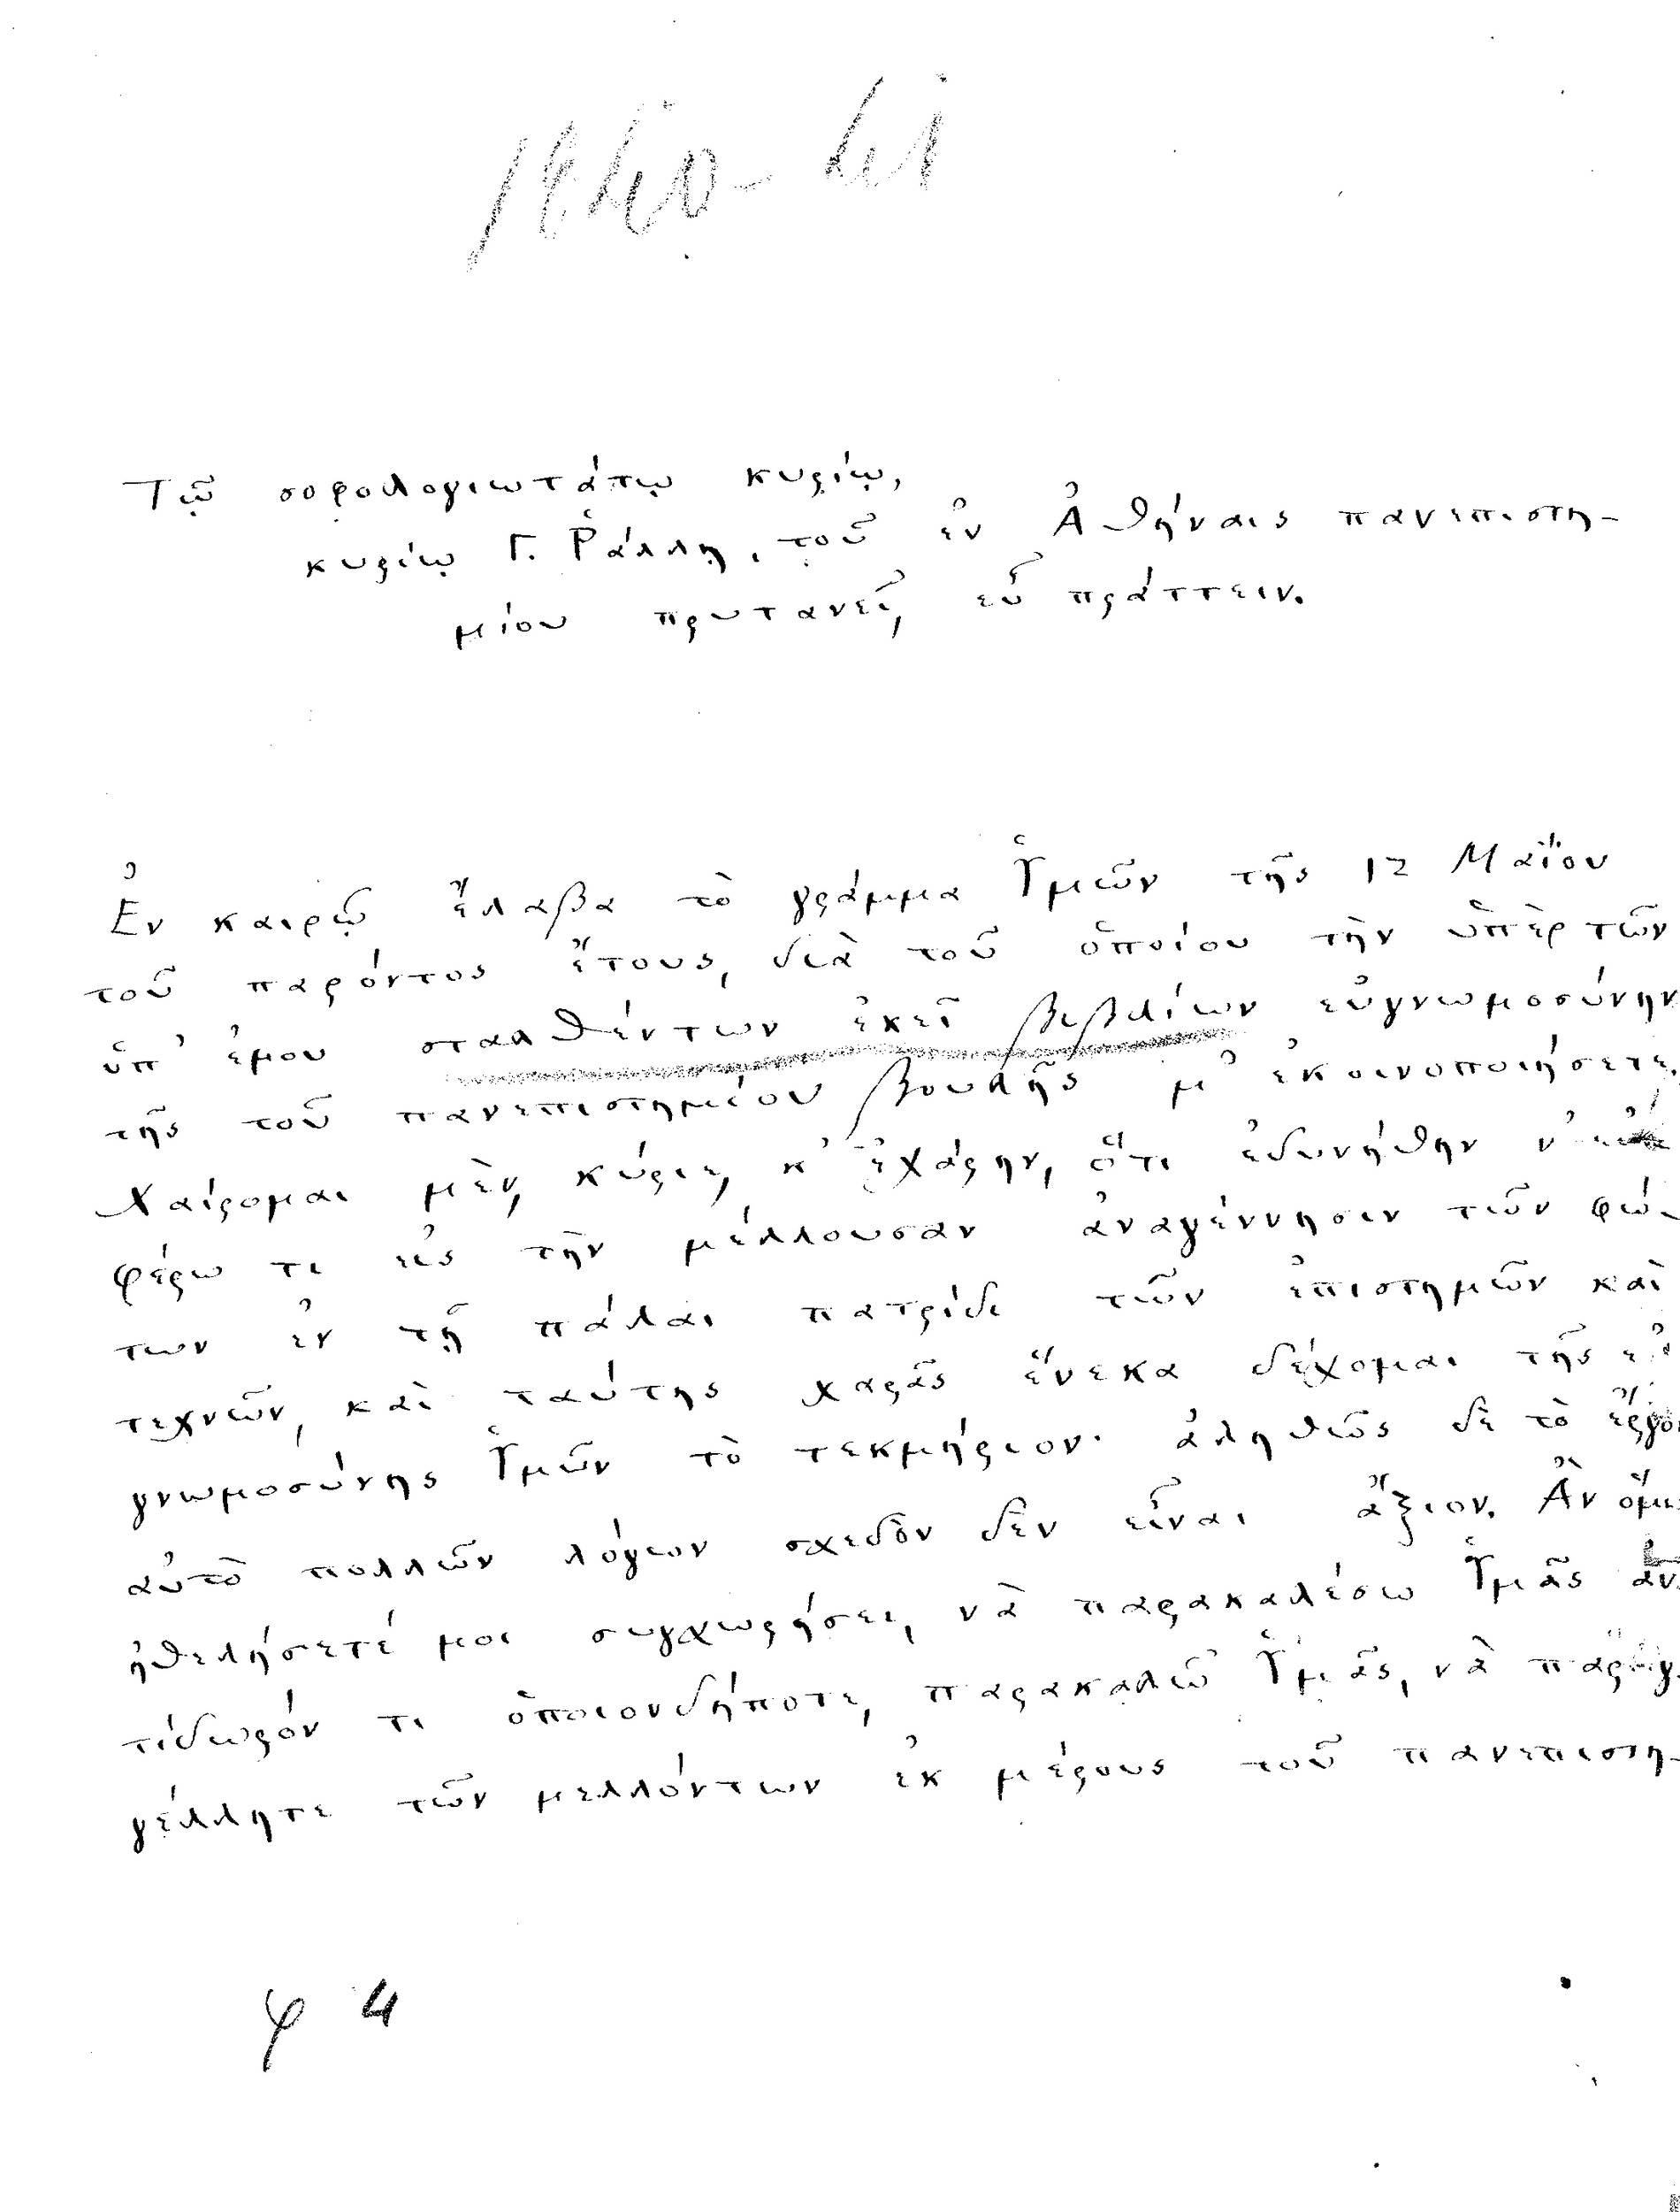 1840-41
Τῷ σοφολογιωτάτῳ κυρίῳ,
κυρίῳ Γ. Ῥάλλῃ, τοῦ ἐν Ἀθήναις πανεπιστη-
μίου πρυτανεῖ, εὖ πράττειν.
Ἐν καιρῷ ἔλαβα τὸ γράμμα Ὑμῶν τῆς 12 Μαΐου
τοῦ παρόντος ἔτους, διὰ τοῦ ὁποίου τὴν ὑπὲρ τῶν
ὑπ' ἐμου σταλθέντων ἐκεῖ βιβλίων εὐγνωμοσύνην
τῆς τοῦ πανεπιστημίου βουλῆς μ' ἐκοινοποιήσετε.
Χαίρομαι μὲν, κύριε, κ' ἐχάρην, ὅτι ἐδυνήθην ν'
φέρω τι εἰς τὴν μέλλουσαν ἀναγέννησιν τῶν φώ-
των ἐν τῇ πάλαι πατρίδι τῶν ἐπιστημῶν καὶ
τεχνῶν, καὶ ταύτης χαρᾶς ἕνεκα δέχομαι τῆς εὐ
γνωμοσύνης Ὑμῶν τὸ τεκμήριον· ἀληθῶς δὲ τὸ ἔργον
αὐτὸ πολλῶν λόγων σχεδὸν δὲν εἶναι ἄξιον. Ἂν ὅμως
ἠθελήσετέ μοι συγχωρήσει, νὰ παρακαλέσω Ὑμᾶς ἀν
τίδωρόν τι ὁποιονδήποτε, παρακαλῶ Ὑμᾶς, νὰ παραγ
γέλλητε τῶν μελλόντων ἐκ μέρους τοῦ πανεπιστη-
φ 4